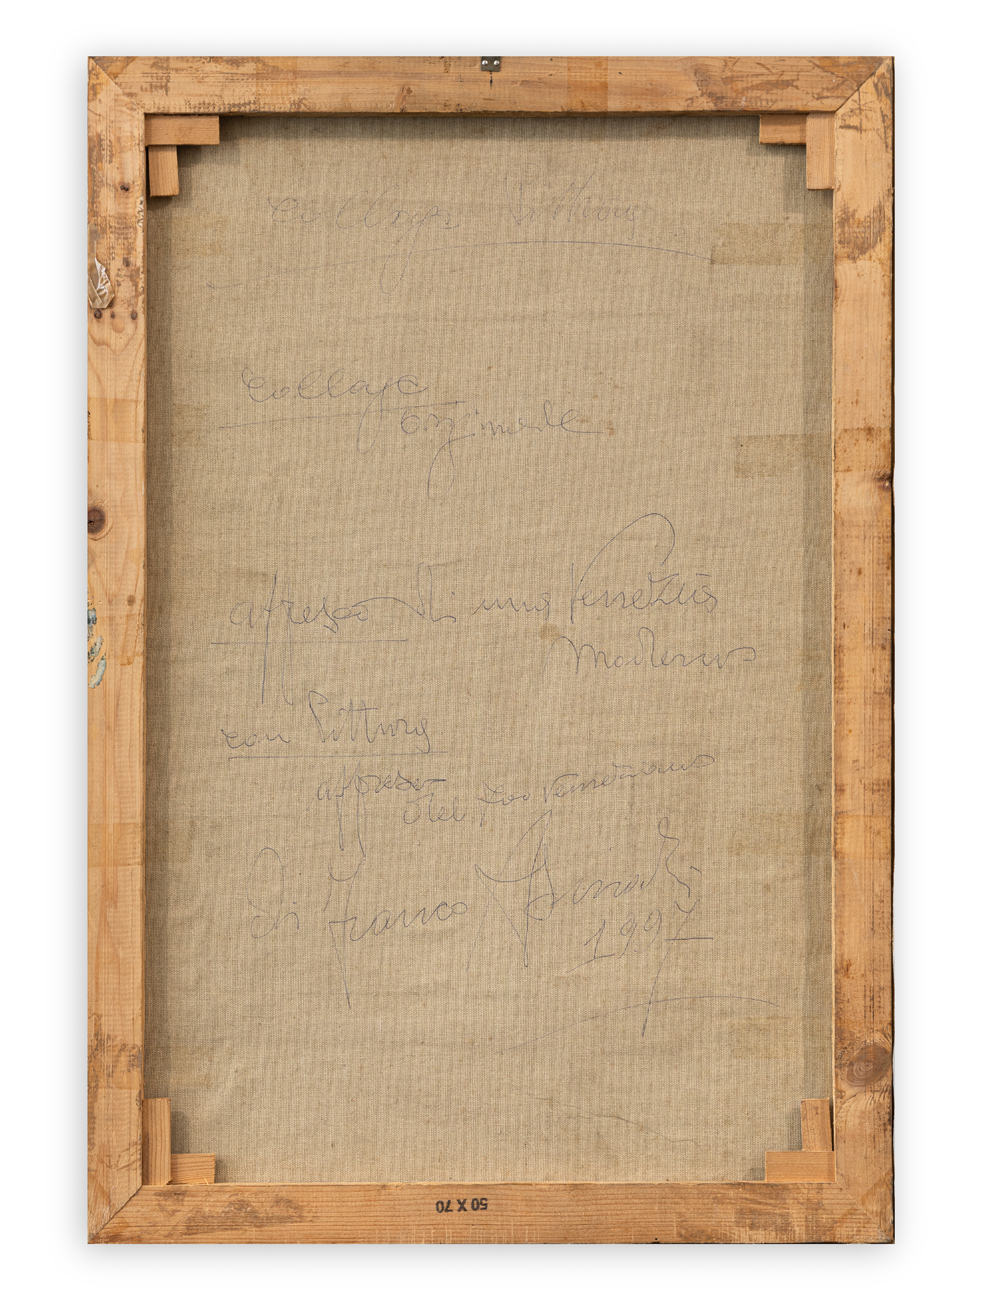 collage pittura
collage
originale
afresco di una Venezia
Moderna
con Pittura
affresco
del
di Franco
1997
50 X 70